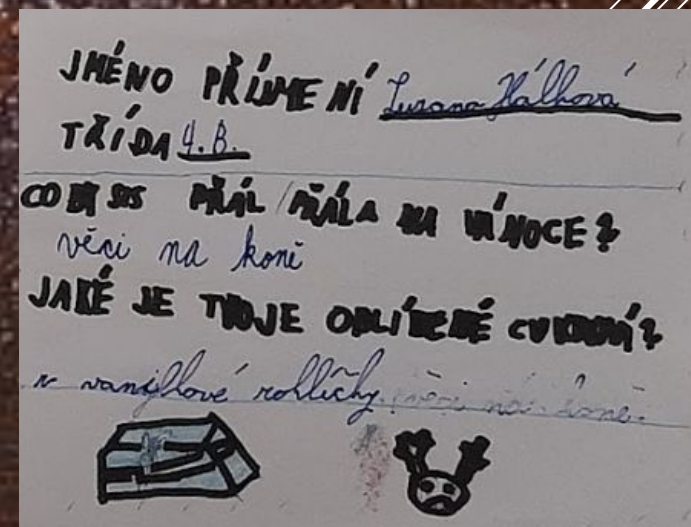 JMÉNO PŘÍJMENÍ Zuzana Hálková
TŘÍDA 4.B.
CO BY SIS PŘÁL/PŘÁLA NA VÁNOCE?
věci na koně
JAKÉ JE TVOJE OBLÍBENÉ CUKROVÍ?
vanilkové rohlíčky